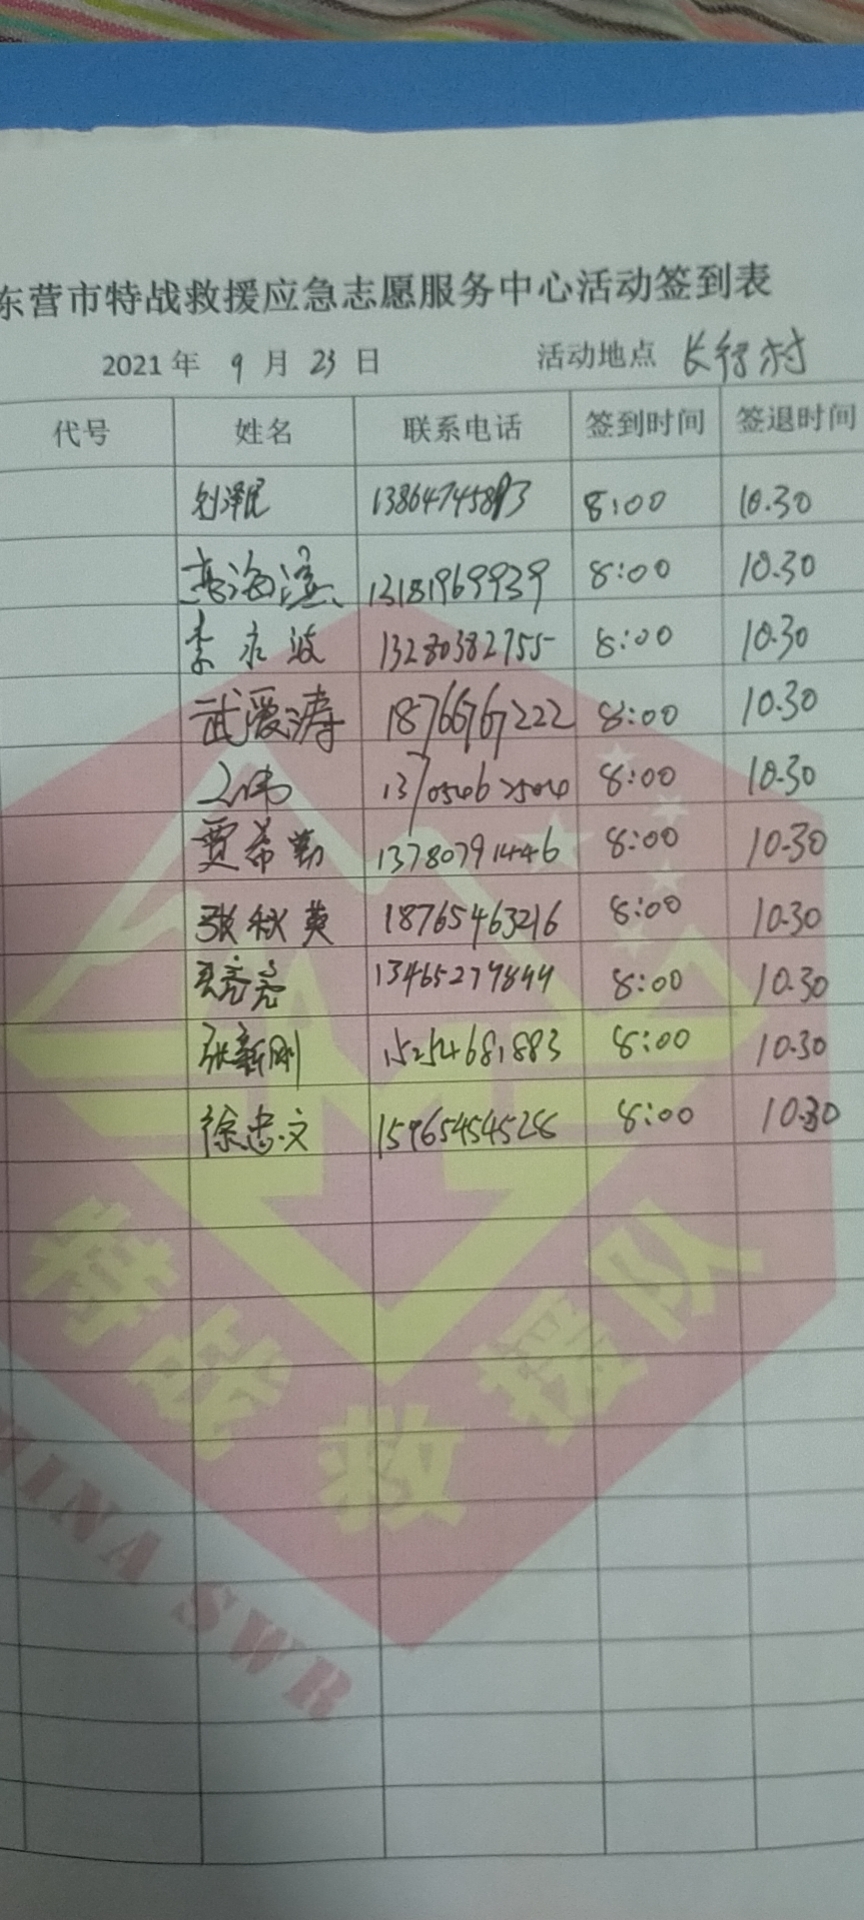 东营市特战救援应急志愿服务中心活动签到表
2021年 9月 23日 活动地点 长行村
代号 姓名 联系电话 签到时间 签退时间
刘泽民 13864745893 8:00 10.30
高海滨 13181969939 8:00 10.30
李永波 13280382755 8:00 10.30
武爱涛 18766767222 8:00 10.30
13705462504 8:00 10.30
贾希勤 13780791446 8:00 10.30
张秋英 18765463216 8:00 10.30
亮亮 13465277844 8:00 10.30
张新刚 15254681883 8:00 10.30
徐忠文 15965454528 8:00 10.30
特战救援队
HINA SWR